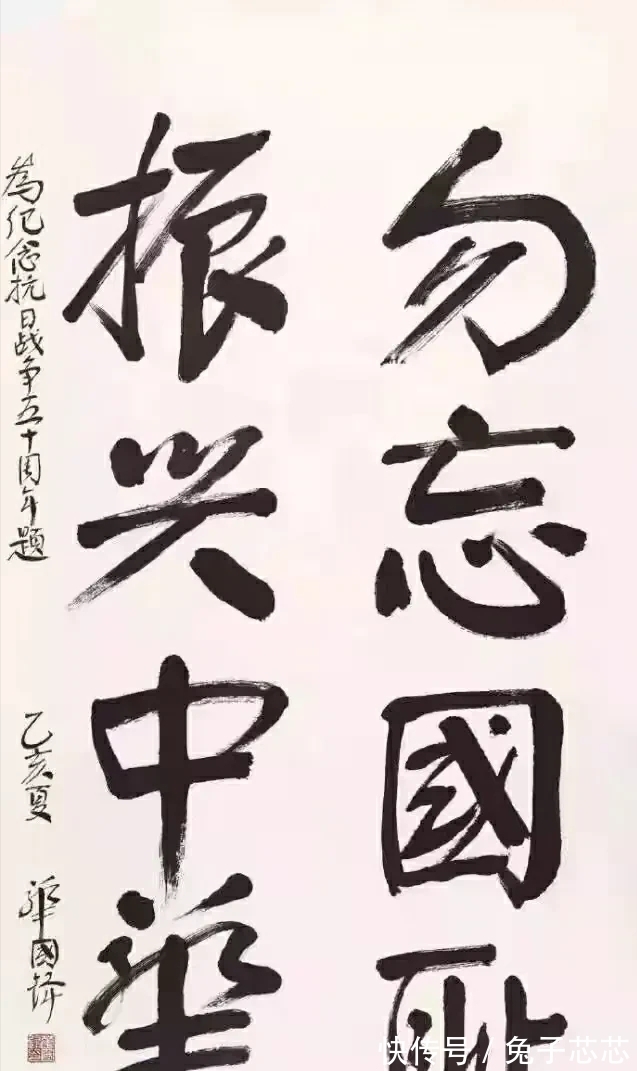 勿忘國耻
振兴中華
為纪念抗日战争五十周年題
乙亥夏
華國锋
快传号 / 兔子芯芯